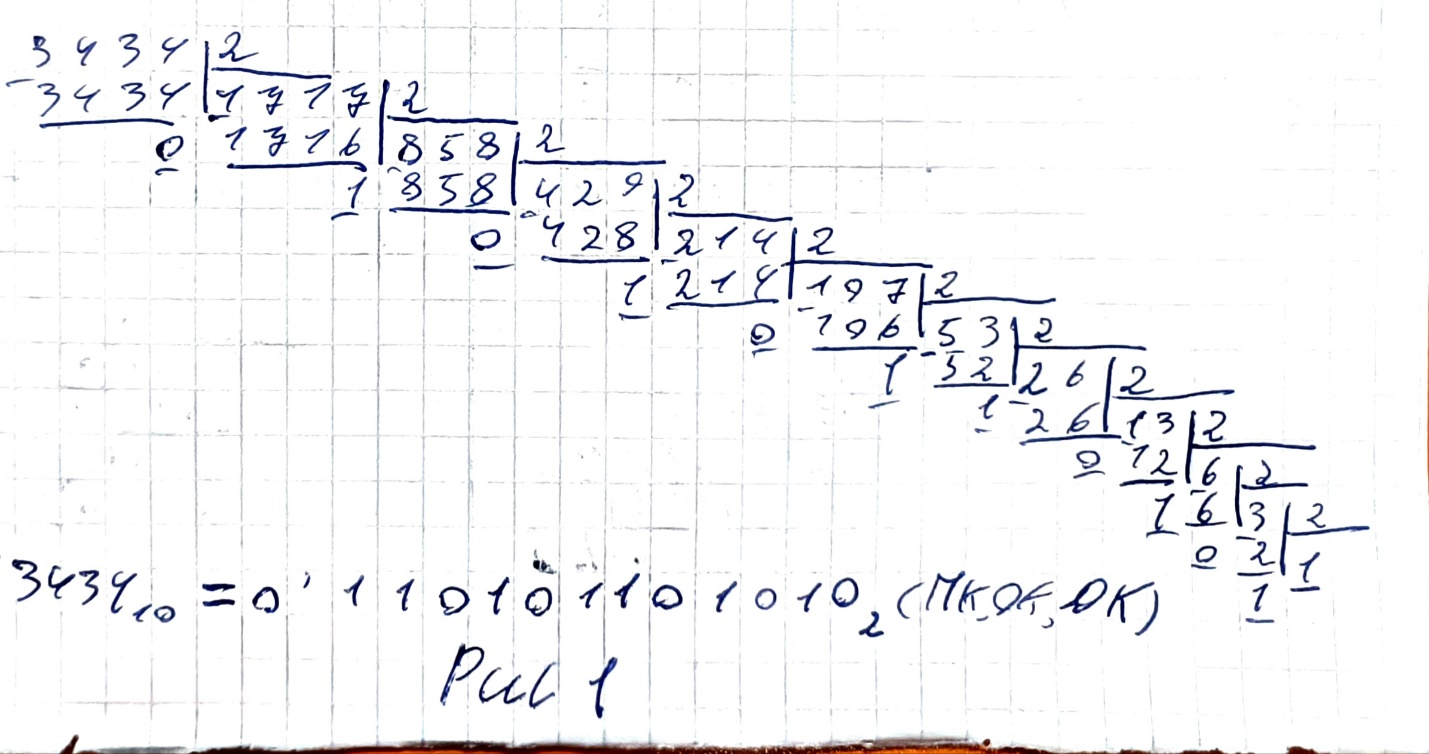 3434 2
-3434 1717 2
0 1716 858 2
1 -858 429 2
0 -428 214 2
1 -214 107 2
0 -106 53 2
1 -52 26 2
1 -26 13 2
0 -12 6 2
1 -6 3 2
0 -2 1
1
3434₁₀ = 0'110101101010₂ (ПК, ОК, ДК)
Рис 1